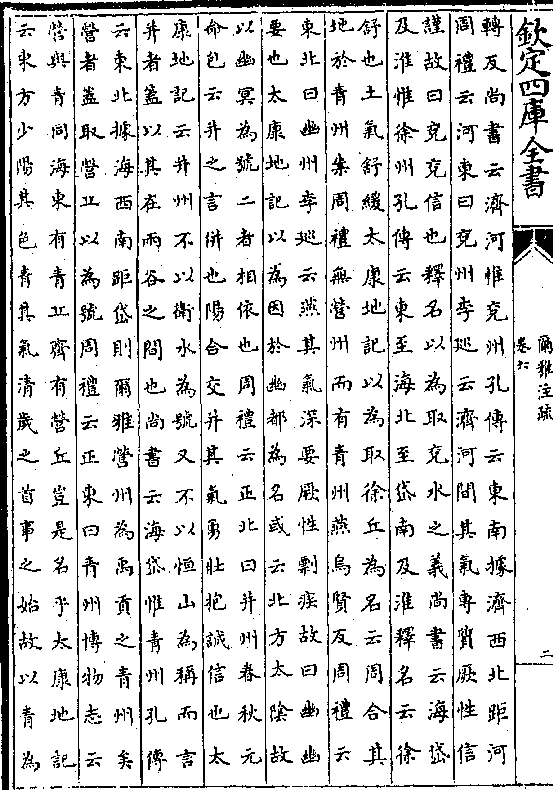 欽定四庫全書
爾雅注疏
卷六
二
轉反尚書云濟河惟兖州孔傳云東南據濟西北距河
周禮云河東曰兖州李廵云濟河間其氣専質厥性信
謹故曰兖兖信也釋名以為取兖水之義尚書云海岱
及淮惟徐州孔傳云東至海北至岱南及淮釋名云徐
舒也土氣舒緩太康地記以為取徐丘為名云周合其
地於青州案周禮無營州而有青州燕烏賢反周禮云
東北曰幽州李廵云燕其氣深要厥性剽疾故曰幽幽
要也太康地記以為因於幽都為名或云北方太隂故
以幽冥為號二者相依也周禮云正北曰并州春秋元
命包云并之言併也陽合交并其氣勇壯抱誠信也太
康地記云并州不以衛水為號又不以恒山為稱而言
并者蓋以其在兩谷之間也尚書云海岱惟青州孔傳
云東北據海西南距岱則爾雅營州為禹貢之青州矣
營者蓋取營丘以為號周禮云正東曰青州博物志云
營與青同海東有青丘齊有營丘豈是名乎太康地記
云東方少陽其色青其氣清歲之首事之始故以青為